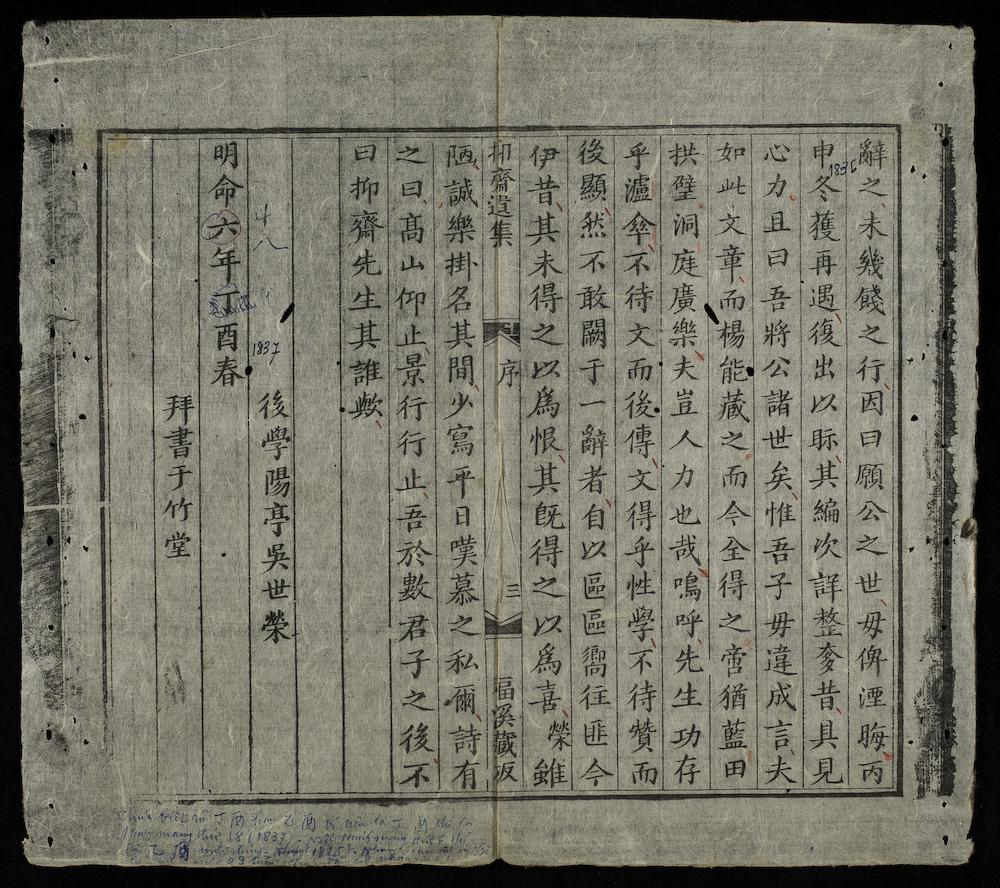 辭之未幾餞之行因曰願公之世毋俾湮晦丙
申冬獲再遇復出以眎其編次詳整奓昔具見
1836
心力且曰吾將公諸世矣惟吾子毋違成言夫
如此文章而楊能藏之而今全得之啻猶藍田
拱璧洞庭廣樂夫豈人力也哉嗚呼先生功存
乎瀘傘不待文而後傳文得乎性學不待贊而
後顯然不敢闕于一辭者自以區區嚮往匪今
伊昔其未得之以爲恨其旣得之以爲喜榮雖
抑齋遺集 序 三 福溪藏板
陋誠樂掛名其間少寫平日嘆慕之私爾詩有
之曰高山仰止景行行止吾於數君子之後不
曰抑齋先生其誰歟
後學陽亭吳世榮
十八
1837
明命六年丁酉春
拜書于竹堂
丁酉 乙酉 丁酉
18 (1837)
乙酉